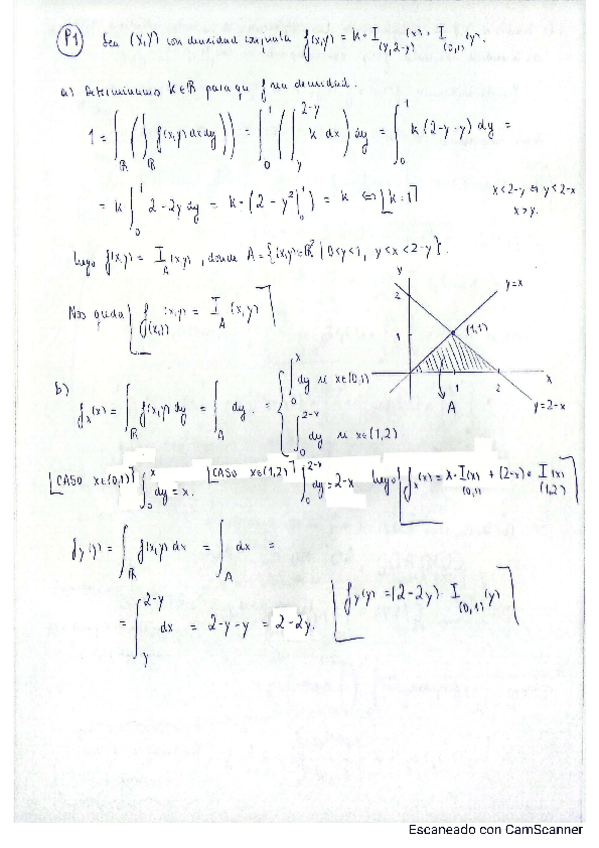 P1 Sea (X,Y) con densidad conjunta f(x,y) = k · I_(y,2-y)(x) · I_(0,1)(y).
a) Determinamos k∈ℝ para que f sea densidad.
1 = ∫_ℝ (∫_ℝ f(x,y) dx dy)) = ∫_0^1 (∫_y^{2-y} k dx) dy = ∫_0^1 k (2-y-y) dy =
= k ∫_0^1 2-2y dy = k · (2 - y²|_0^1) = k ⇔ k=1
x<2-y ⇔ y<2-x
x>y.
luego f(x,y) = I_A(x,y), donde A = {(x,y)∈ℝ² | 0<y<1, y<x<2-y}.
Nos queda f_(x,y)(x,y) = I_A(x,y)
y
2
1
y=x
(1,1)
1
2
x
A
y=2-x
b)
f_x(x) = ∫_ℝ f(x,y) dy = ∫_A dy. = { ∫_0^x dy si x∈(0,1)
∫_0^{2-x} dy si x∈(1,2)
CASO x∈(0,1) ∫_0^x dy = x. CASO x∈(1,2) ∫_0^{2-x} dy = 2-x luego f_x(x) = x · I_(0,1)(x) + (2-x) · I_(1,2)(x)
f_y(y) = ∫_ℝ f(x,y) dx = ∫_A dx =
= ∫_y^{2-y} dx = 2-y-y = 2-2y. f_y(y) = (2-2y) · I_(0,1)(y)
Escaneado con CamScanner